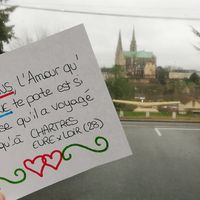 L'Amour qu'
te porte est si
qu'il a voyagé
CHARTRES
EURE & LOIR (28)